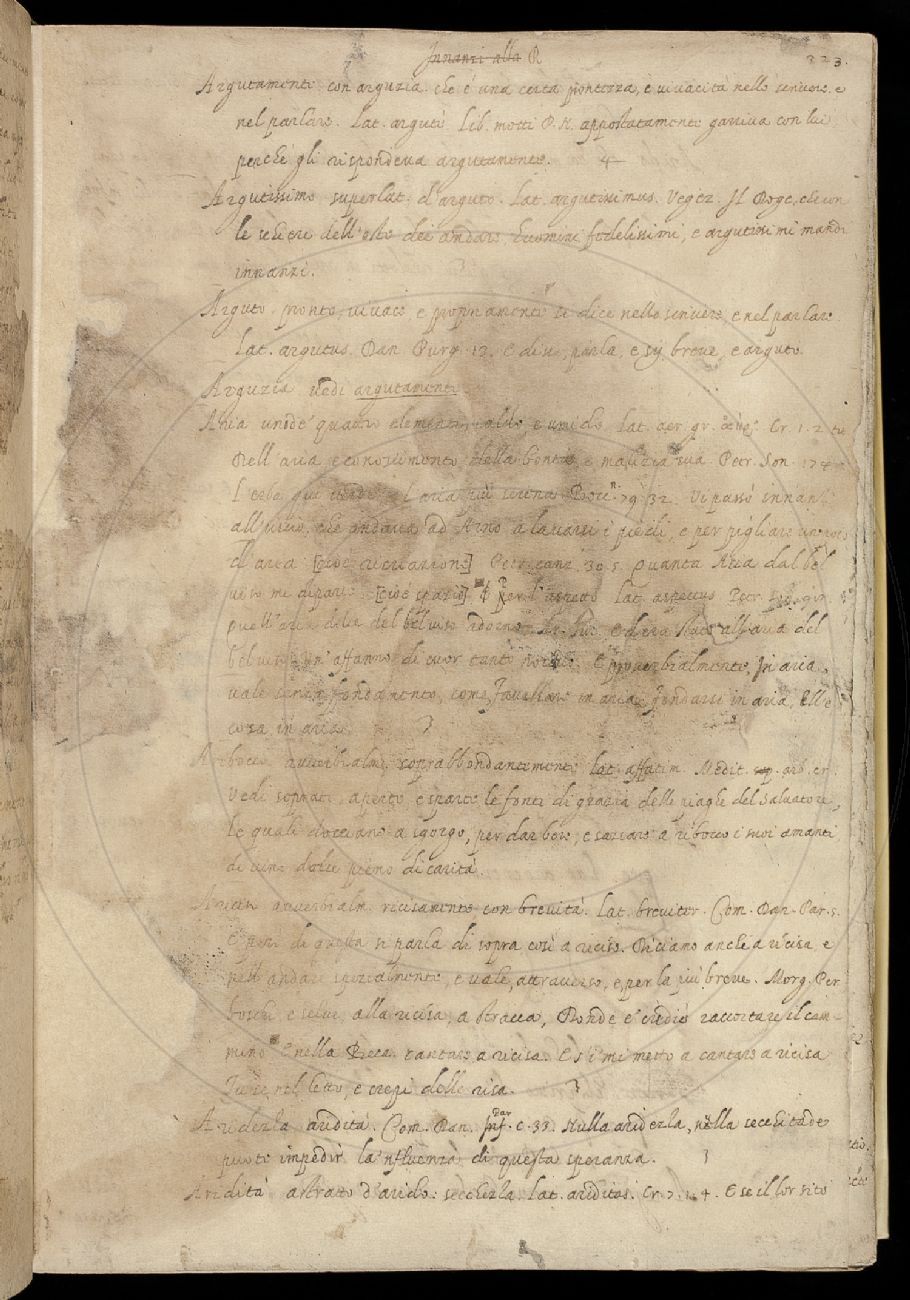 Innanzi alla R
323.
Argutamente con arguzia. che è una certa prontezza, e vivacità nello scrivere e
nel parlare. Lat. argutè. Lib. motti P. N. appostatamente garriva con lui
perchè gli rispondeva argutamente.
Argutissimo superlat. d'arguto. Lat. argutissimus. Vegez. Il Doge, che con
le schiere dell'oste dee andare huomini fedelissimi, e argutissimi mandi
innanzi.
Arguto. pronto, vivace, e propriamente si dice nello scrivere, e nel parlare
Lat. argutus. Dan Purg. 13. e disse, parla, e sij breve, e arguto.
Arguzia vedi argutamente
Aria uno de' quattro elementi, caldo, e umido Lat. aer. gr. Cr. 1. 2. tit
Dell'aria e conoscimento della bontà, e malizia sua Petr. Son. 174
L'erba qui l'aria più serena Bocc. n. 79. 32. Vi passò innanzi
all'uscio, che andava ad Arno a lavarsi i piedi, e per pigliare un poco
d'aria [cioè ricreazione] Petr. canz. 30. 5. Quanta Aria dal bel
viso mi diparte [cioè spazio] per l'aspetto Lat. aspectus Petr.
quell'aria dolce del bel viso adorno e di era Nato all'aria del
bel viso un affanno di cuor tanto E proverbialmente, In aria
vale senza fondamento, come favellare in aria, fondarsi in aria, Ell'è
cosa in aria.
A ribocco avverbialm. soprabbondantemente lat. affatim. Medit. arb. cr.
Vedi soprat. aperte, e sparte le fonti di grazia delle piaghe del Salvatore,
le quali docciano a sgorgo, per dar bere, e saziare a ribocco i suoi amanti
di vino dolce pieno di carità.
A riciso avverbialm. ricisamente con brevità. Lat. breviter. Com. Dan. Par. 5.
E però di questa si parla di sopra così a riciso. Diciamo anche a ricisa e
nell'andare spezialmente, e vale, attraverso, e, per la più breve. Morg. Per
boschi e selve, alla ricisa, a stracca, Donde e' credie raccortare il cam-
mino E nella Beca. cantare a ricisa. E s'i' mi metto a cantare a ricisa
nel letto, e crepi delle risa.
Aridezza aridità. Com. Dan. Par. c. 33. Nulla aridezza, nulla secchitade
puote impedir la 'nfluenza di questa speranza.
Aridità astratto d'arido: secchezza. Lat. ariditas. Cr. 2. 4. E se il lor sito